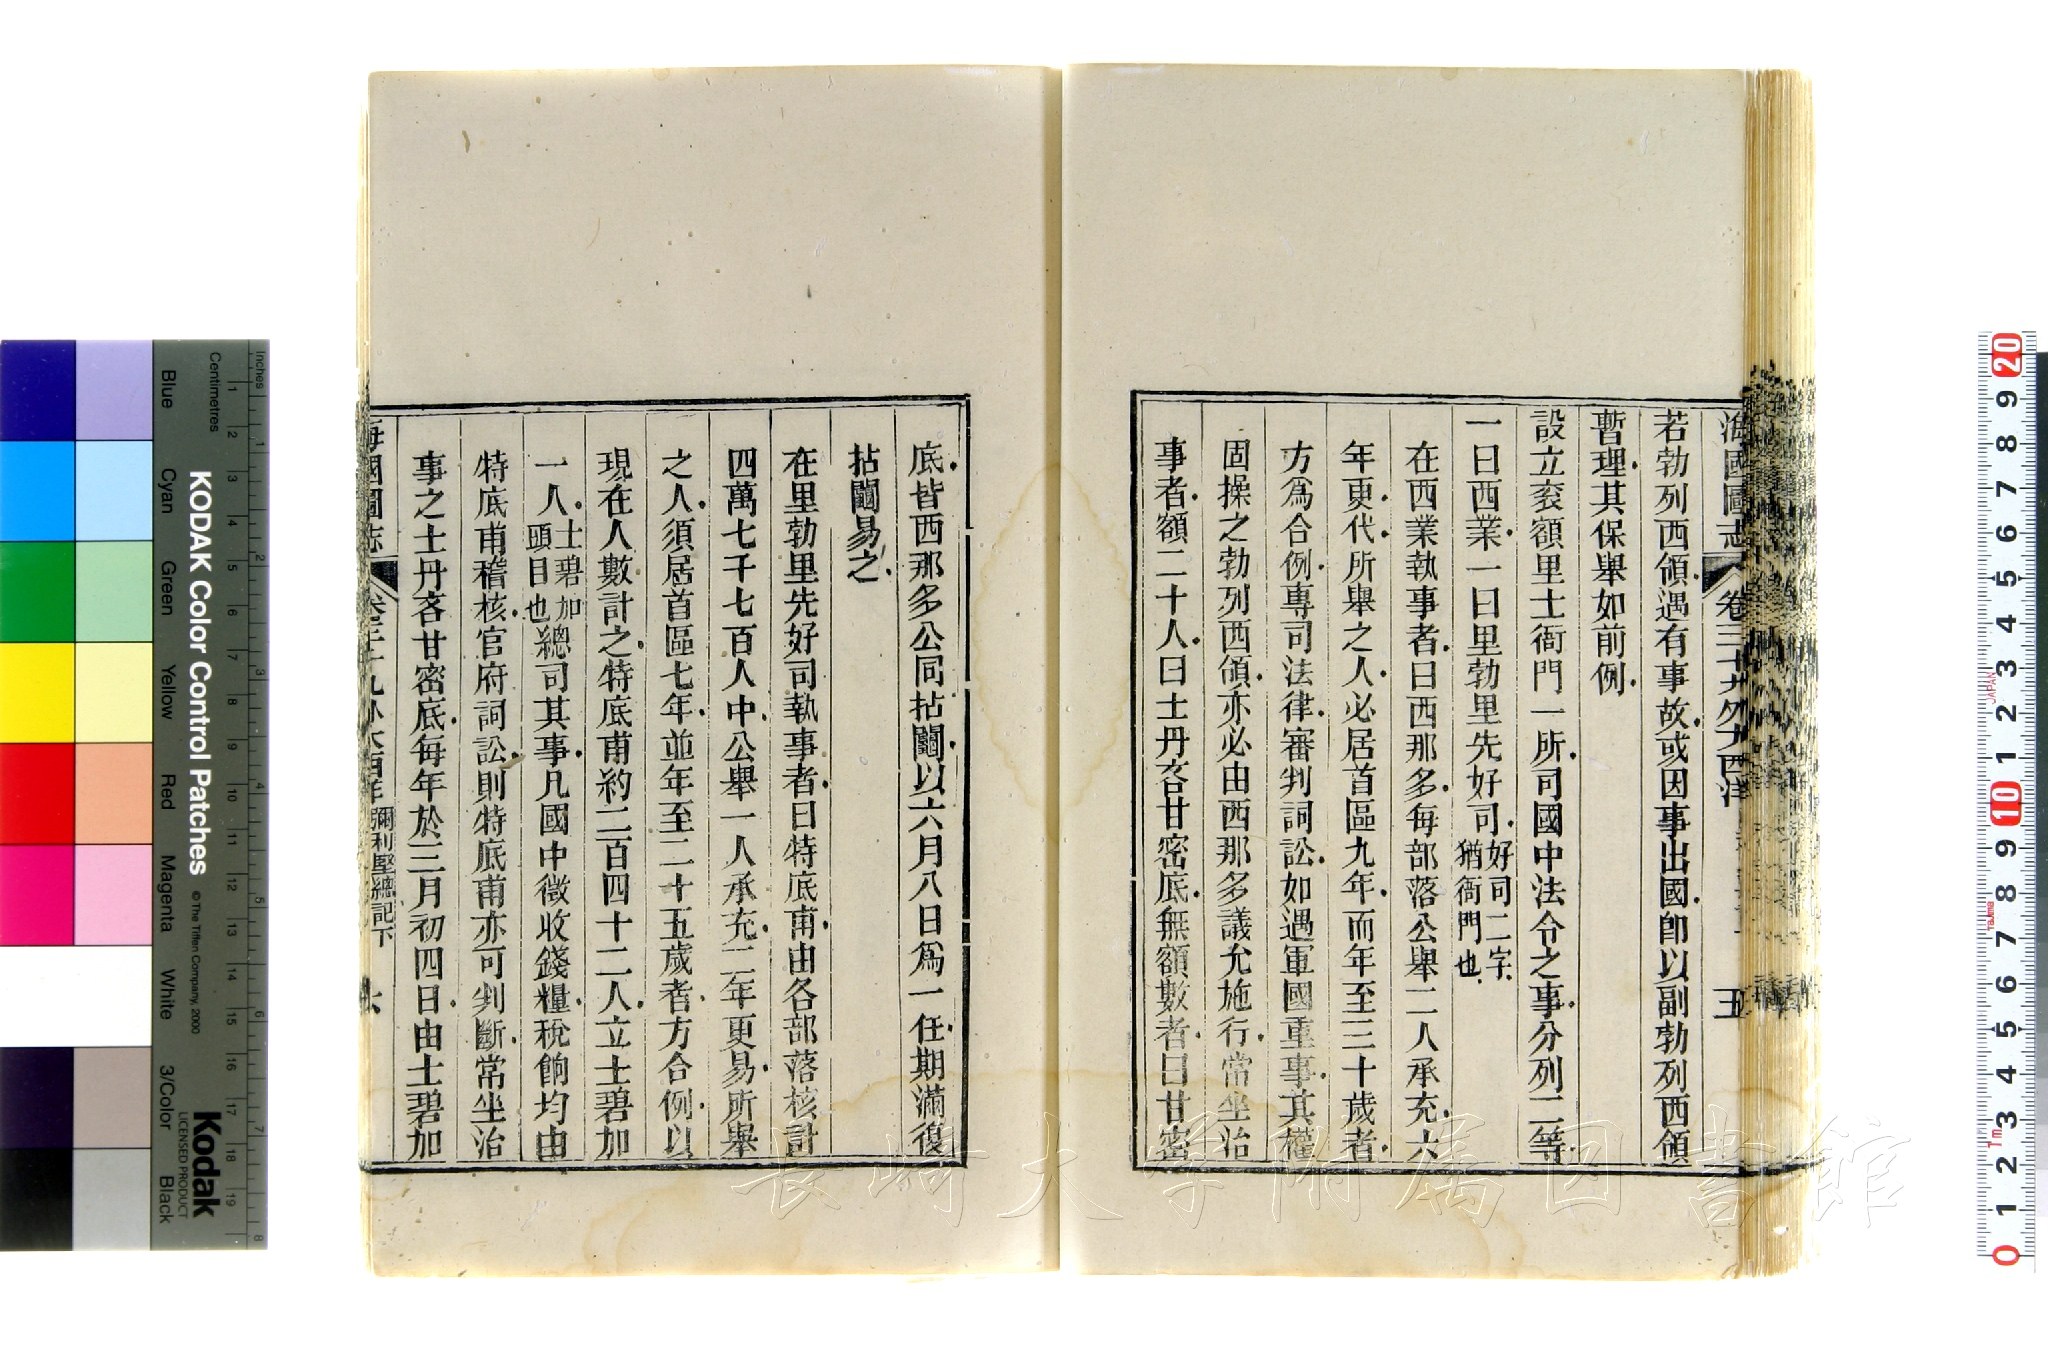 海國圖志 卷三十九外大西洋 五
若勃列西領遇有事故或因事出國卽以副勃列西領
暫理其保舉如前例
設立袞額里士衙門一所司國中法令之事分列二等
一曰西業一曰里勃里先好司好司二字猶衙門也
在西業執事者曰西那多每部落公舉二人承充六
年更代所舉之人必居首區九年而年至三十歲者
方爲合例專司法律審判詞訟如遇軍國重事其權
固操之勃列西領亦必由西那多議允施行常坐治
事者額二十人曰士丹吝甘密底無額數者曰甘密
底皆西那多公同拈鬮以六月八日爲一任期滿復
拈鬮易之
在里勃里先好司執事者曰特底甫由各部落核計
四萬七千七百人中公舉一人承充二年更易所舉
之人須居首區七年並年至二十五歲者方合例以
現在人數計之特底甫約二百四十二人立士碧加
一人士碧加頭目也總司其事凡國中徵收錢糧稅餉均由
特底甫稽核官府詞訟則特底甫亦可判斷常坐治
事之士丹吝甘密底每年於三月初四日由士碧加
海國圖志 卷三十九外大西洋 彌利堅總記下 六
KODAK Color Control Patches
© The Tiffen Company, 2000
Kodak
LICENSED PRODUCT
Centimetres
Inches
Blue
Cyan
Green
Yellow
Red
Magenta
White
3/Color
Black
1 2 3 4 5 6 7 8 9 10 11 12 13 14 15 16 17 18 19
1 2 3 4 5 6 7 8
0 1 2 3 4 5 6 7 8 9 10 1 2 3 4 5 6 7 8 9 20
JAPAN
Tajima
長崎大学附属図書館